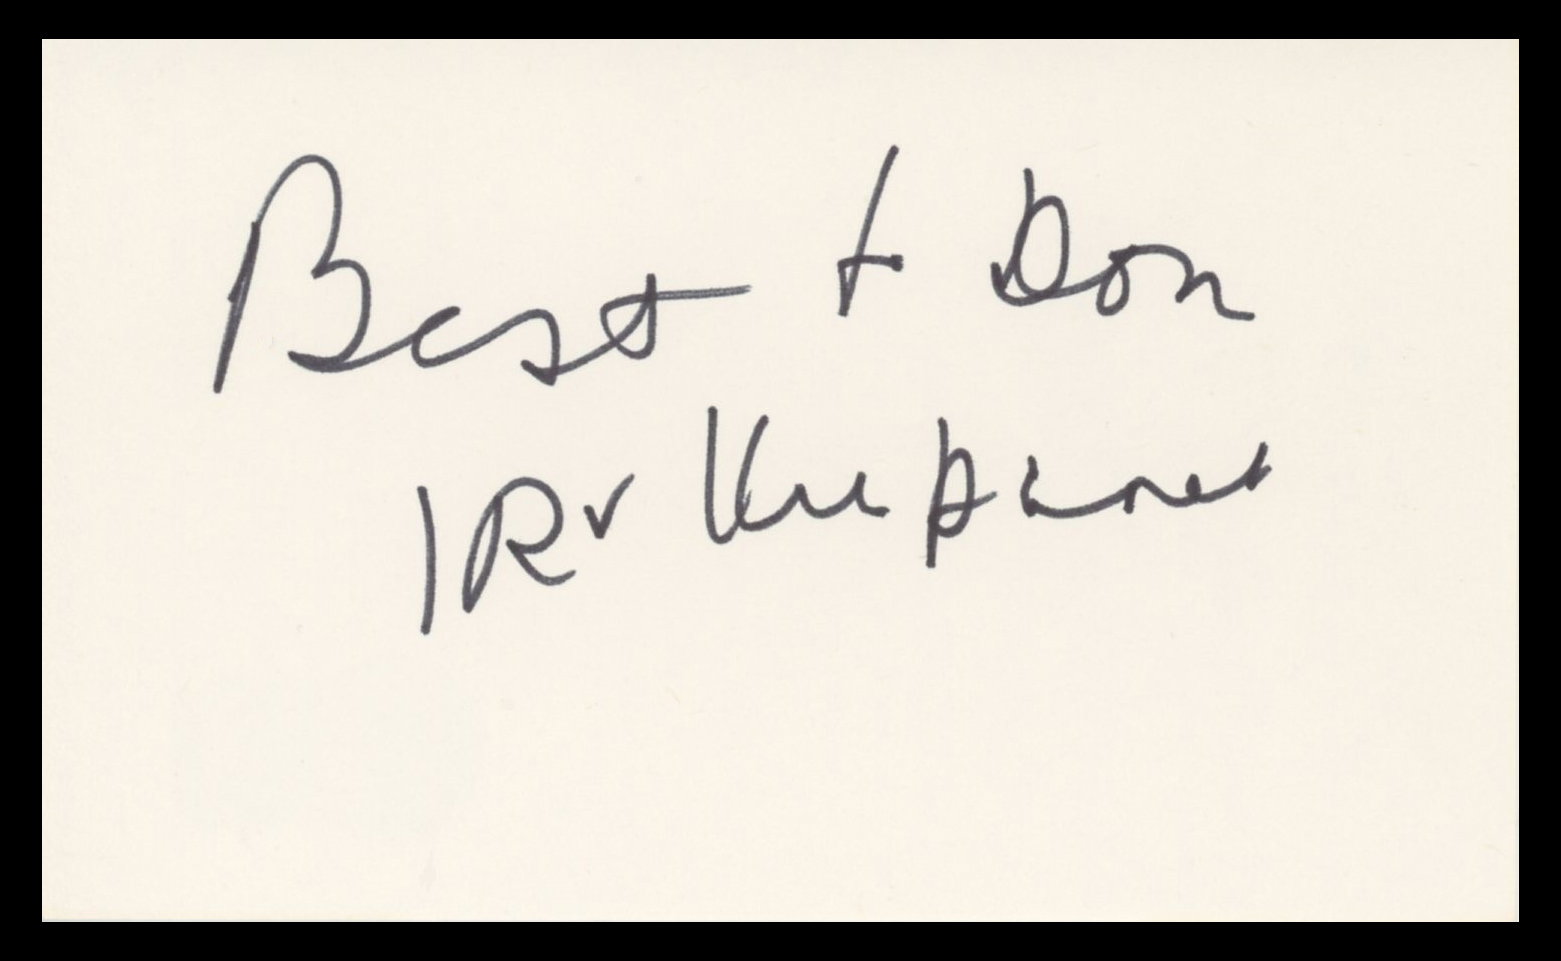 Best to Don
IRv Kupcinet